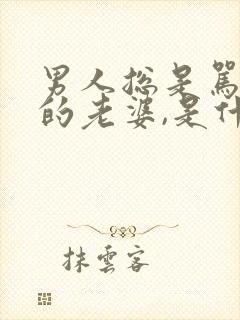 男人总是骂
的老婆,是什
抹雲客